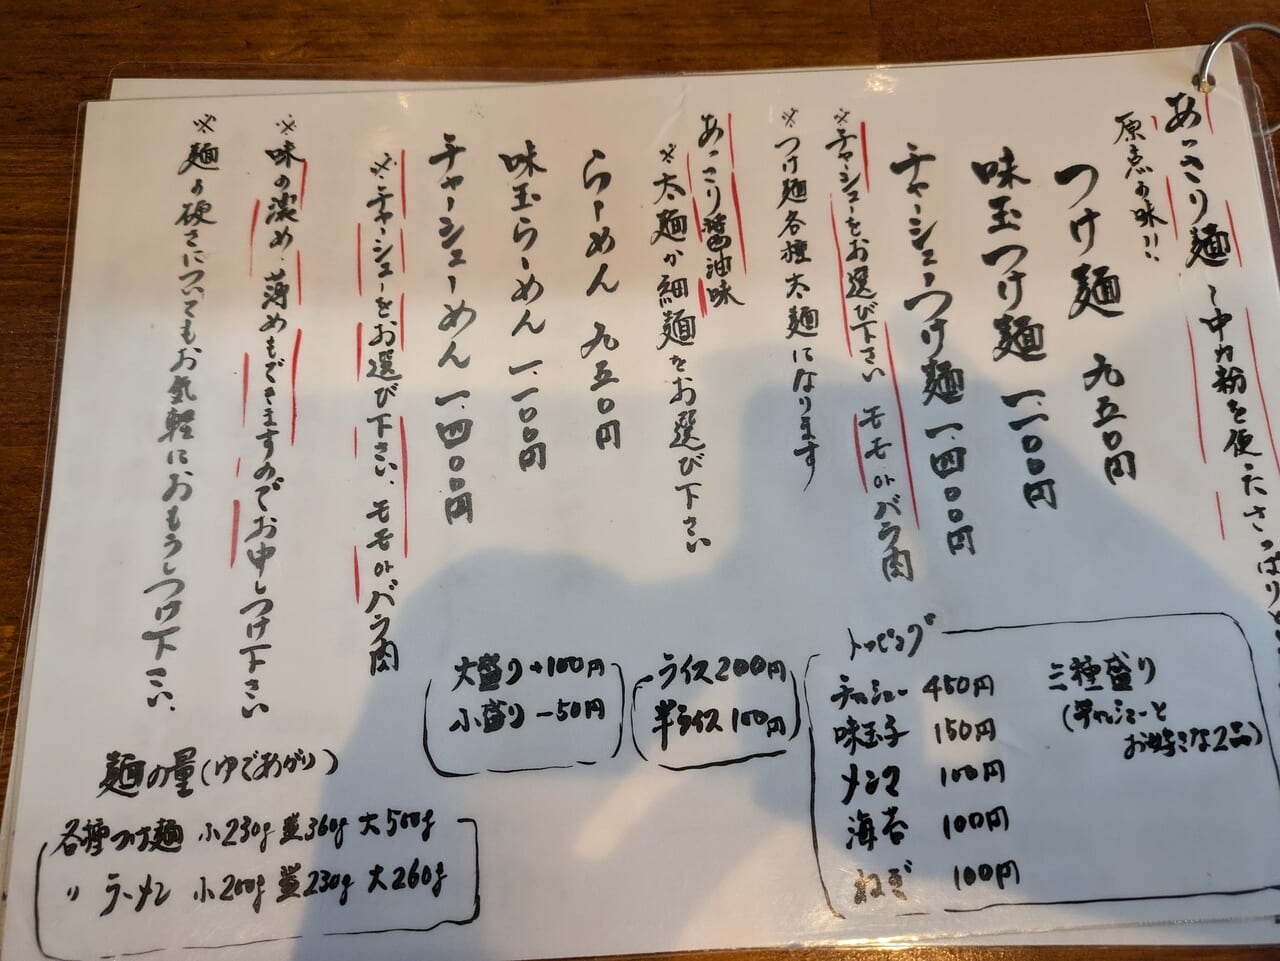 あっさり麺 〜中力粉を使ったさっぱり
原点の味!!
つけ麺 九五0円
味玉つけ麺 一、一00円
チャーシューつけ麺 一、四00円
※チャーシューをお選び下さい モモorバラ肉
※つけ麺各種太麺になります
あっさり醤油味
※太麺か細麺をお選び下さい
らーめん 九五0円
味玉らーめん 一、一00円
チャーシューめん 一、四00円
※チャーシューをお選び下さい、モモorバラ肉
※味の濃め、薄めもできますのでお申しつけ下さい
※麺の硬さについてもお気軽におもうしつけ下さい、
トッピング
チャーシュー 450円
味玉子 150円
メンマ 100円
海苔 100円
ねぎ 100円
三種盛り
(半チャーシューと
お好きな2品)
ライス200円
半ライス100円
大盛り+100円
小盛り-50円
麺の量(ゆであがり)
各種つけ麺 小230g 並360g 大500g
〃 ラーメン 小200g 並230g 大260g